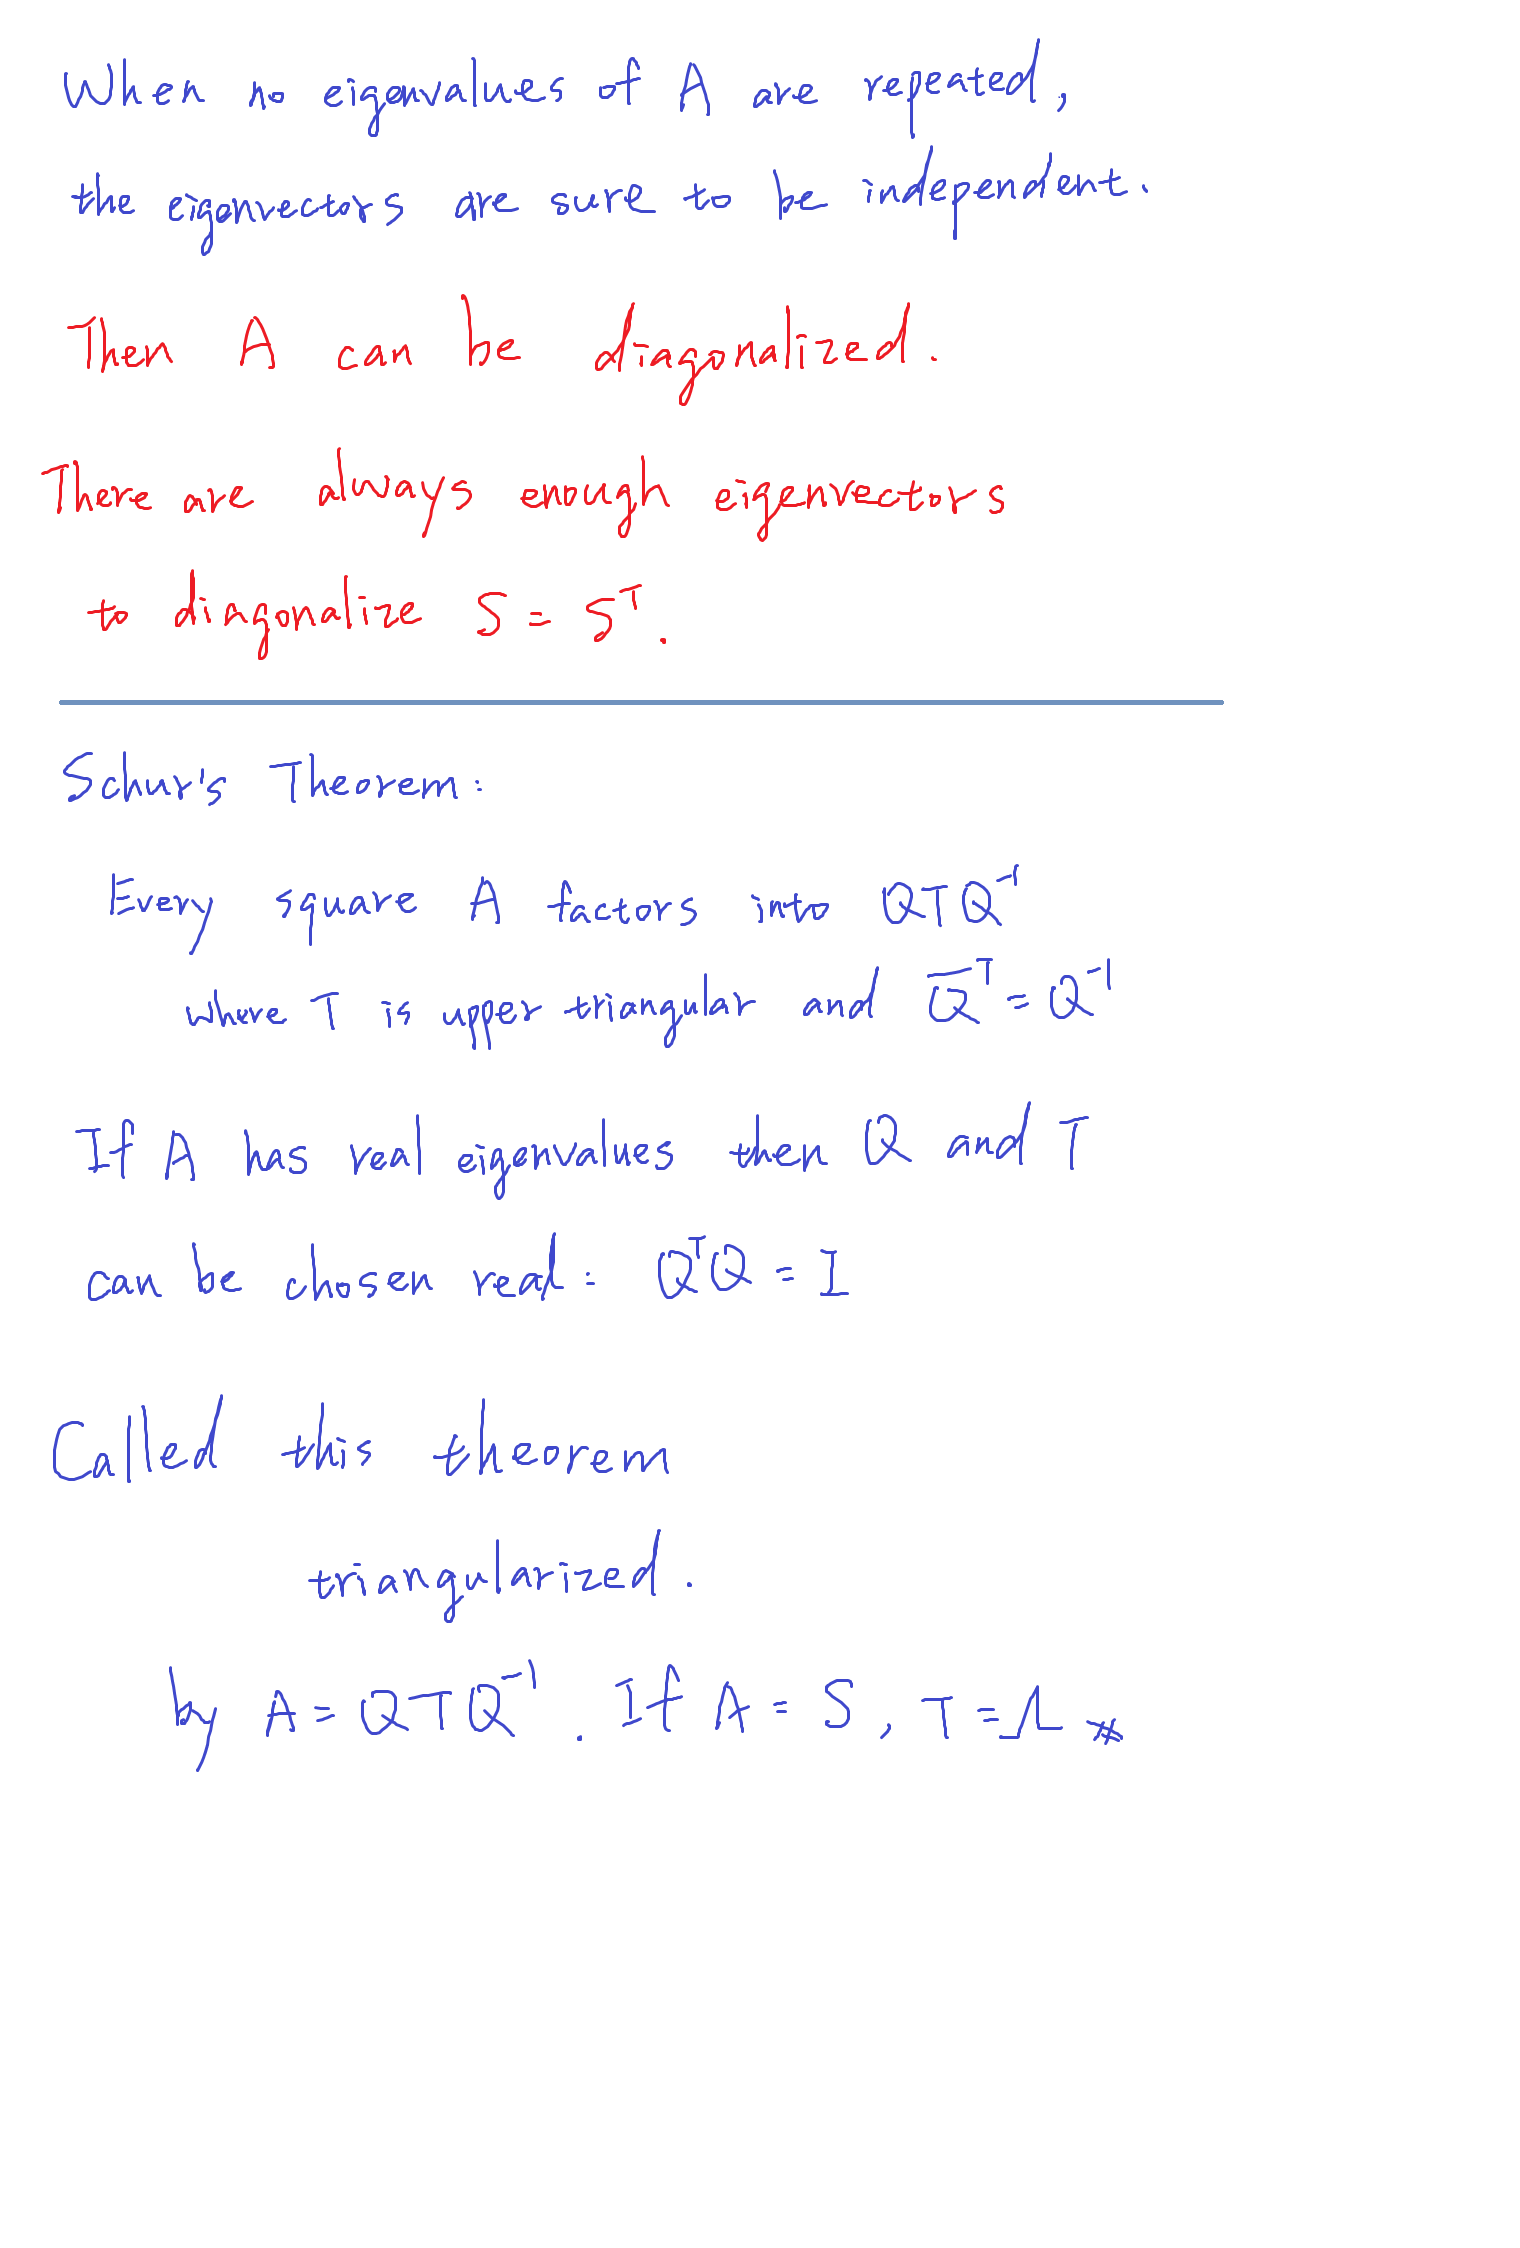 When no eigenvalues of A are repeated,
the eigenvectors are sure to be independent.
Then A can be diagonalized.
There are always enough eigenvectors
to diagonalize S = Sᵀ.
Schur's Theorem:
Every square A factors into QTQ⁻¹
where T is upper triangular and Q̅ᵀ = Q⁻¹
If A has real eigenvalues then Q and T
can be chosen real: QᵀQ = I
Called this theorem
triangularized.
by A = QTQ⁻¹. If A = S, T = Λ #